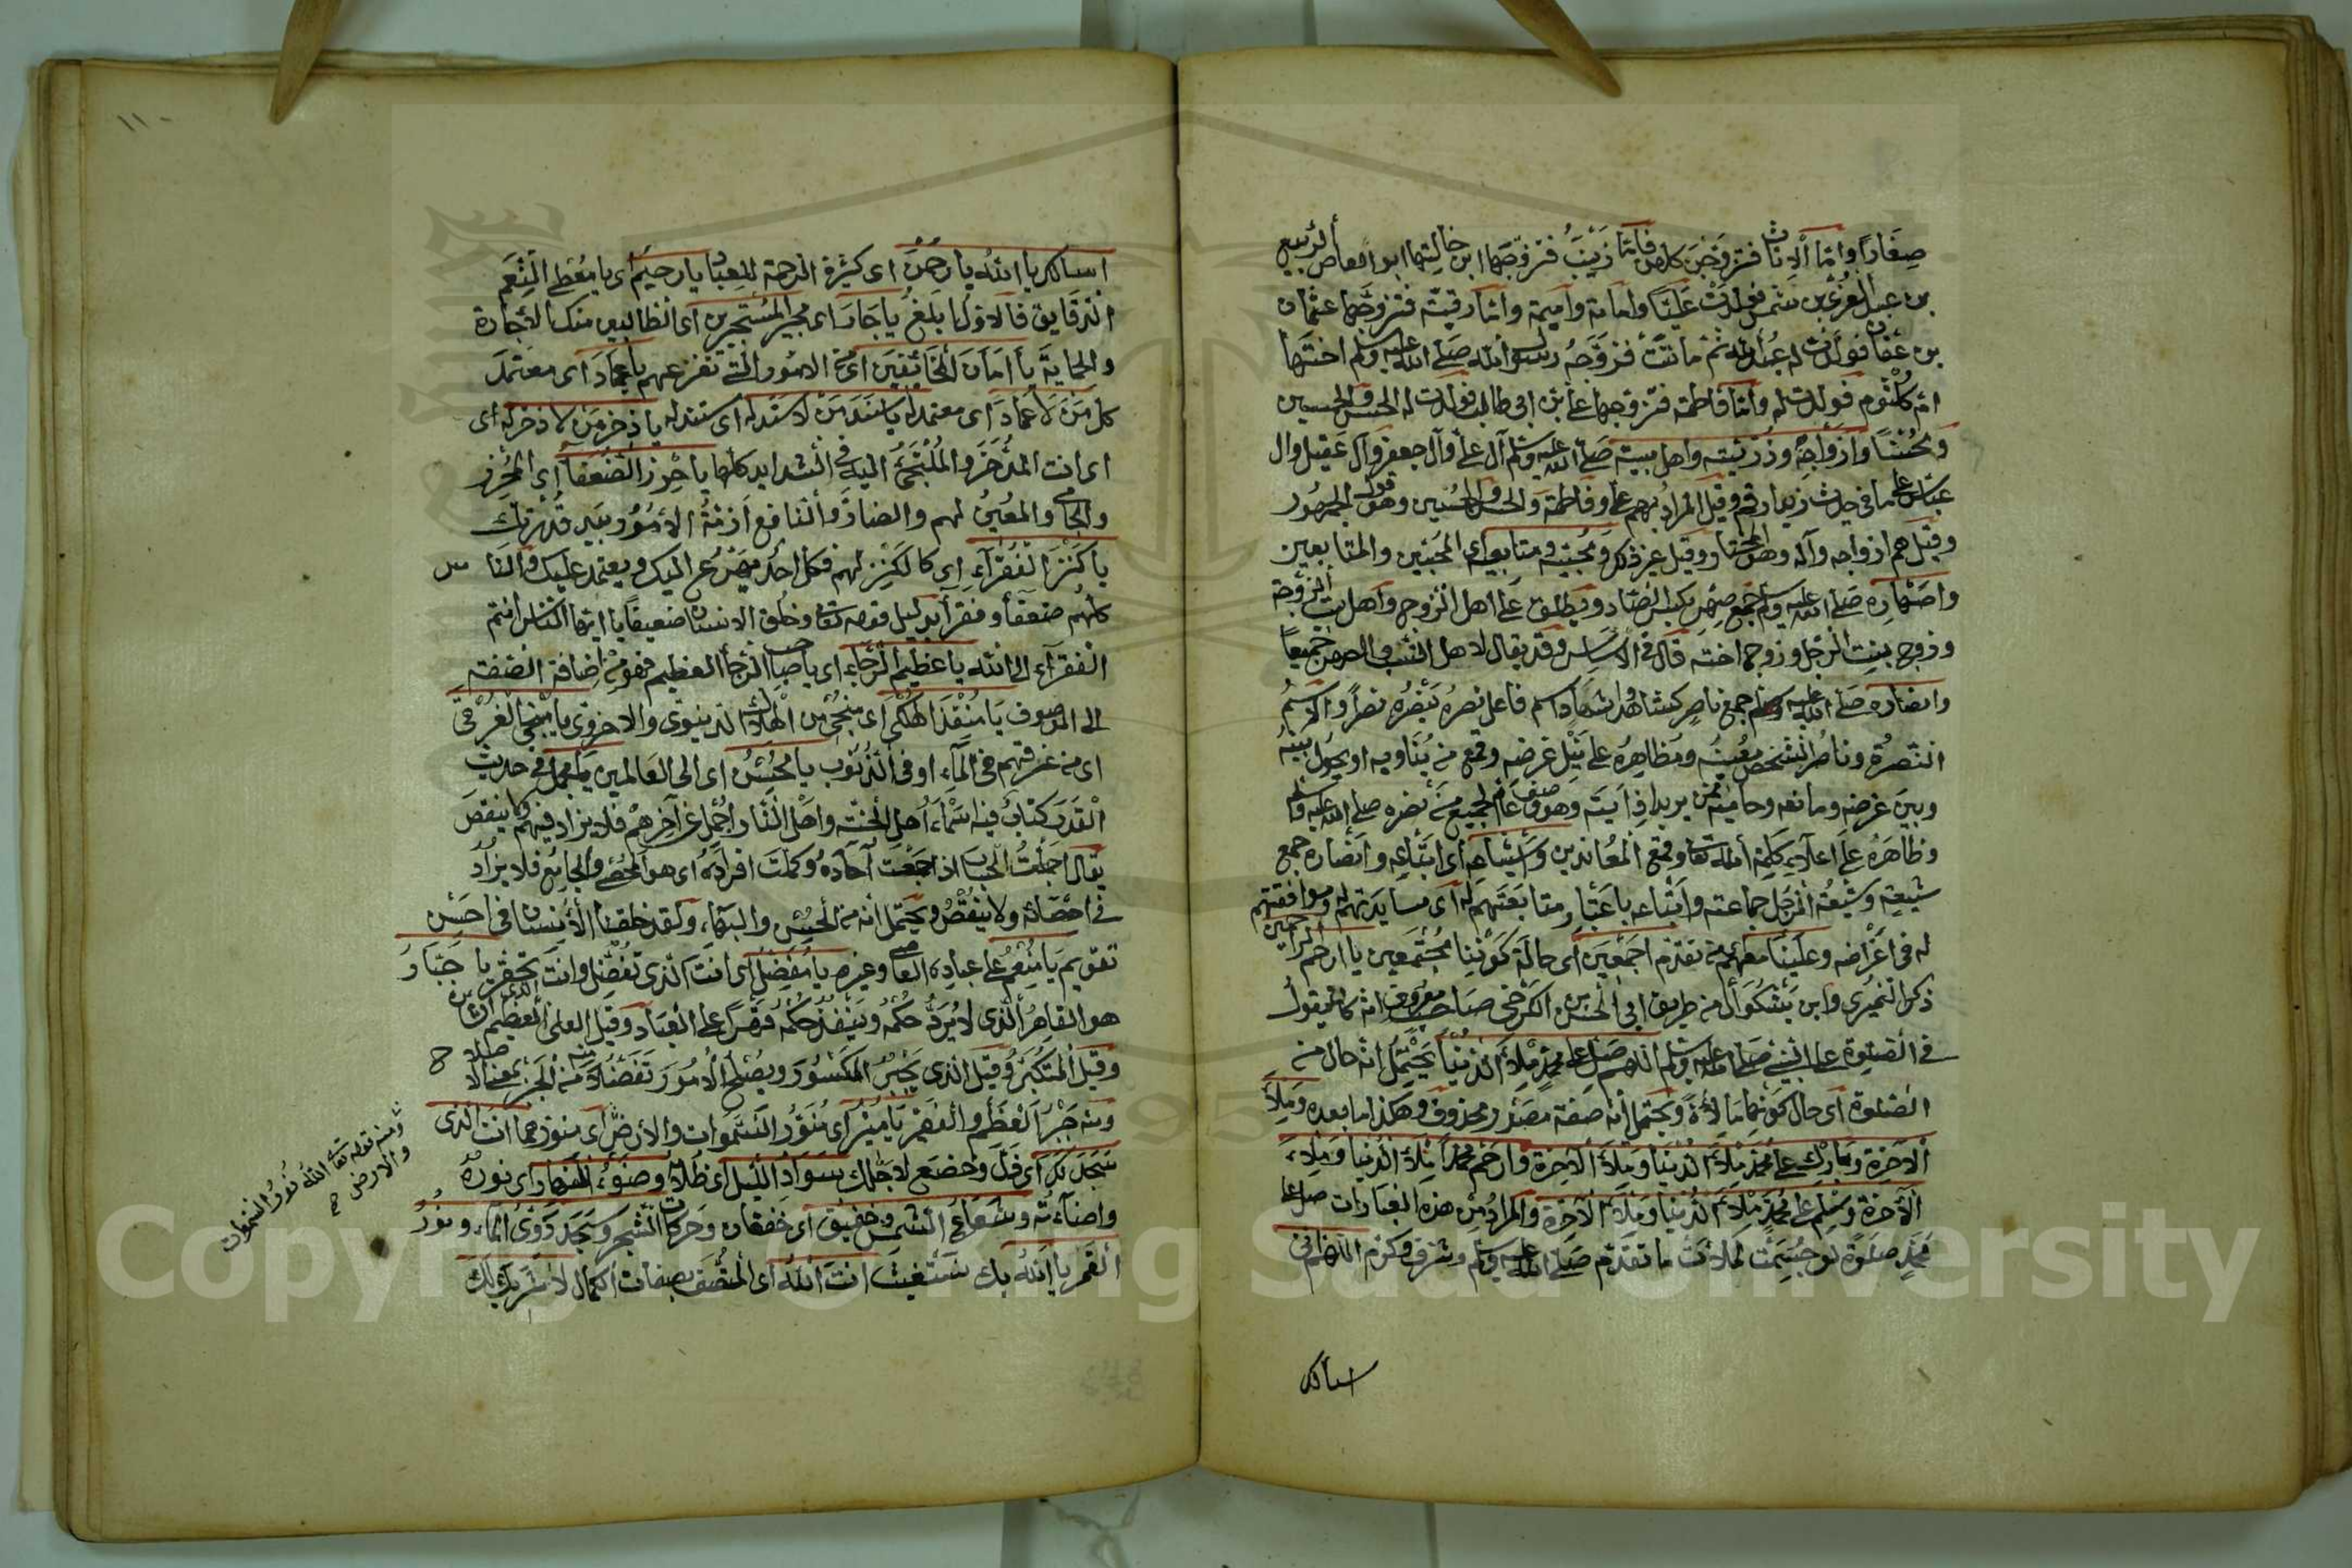 صِغَارًا وامّا الاناث فتزوّجن كلهن فامّا زَيْنَبُ فتزوّجها ابن خالتها ابو العاص الربيع
بن عبد العزى بن شمس فولدت عَلِيًّا وامامة واميمة وامّا رقيّة فتزوّجها عثمان
بن عفان فولدت له عبد الله ثم ماتت فزوّجه رسول الله صلى الله عليه وسلم اختها
ام كلثوم فولدت له وامّا فاطمة فتزوجها علي بن ابى طالب فولدت له الحسن والحسين
ومحسنًا وازواجه وذرّيّته واهل بيته صلى الله عليه وسلم آل علي وآل جعفر وآل عقيل وآل
عباس كما في حديث زيد بن ارقم وقيل المراد بهم علي وفاطمة والحسن والحسين وهو قول الجمهور
وقيل هم ازواجه وآله وهو المختار وقيل غير ذلك ومحبّيه ومتابعيه اى المحبّين والمتابعين
واصهاره صلى الله عليه وسلم جمع صهر بكسر الصّاد ويطلق على اهل الزوج واهل بيت الزوجة
وزوج بنت الرجل وزوج اخته قال في الاساس وقد يقال لاهل النسب والصهر جميعًا
وانصاره صلى الله عليه وسلم جمع ناصر كشاهد واشهاد اسم فاعل نصره ينصره نصرًا والاسم
النصرة وناصر الشخص معينه ومظاهره على نيل غرضه وقمع من يناويه او يحول بينه
وبين غرضه ومانعه وحاميه ممن يريد اذايته وهو وصف عامّ لجميع من نصره صلى الله عليه وسلم
وظاهره على اعلاء كلمة الله تعالى وقمع المعاندين واشياعه اى اتباعه وانصاره جمع
شيعة وشيعة الرجل جماعته واتباعه باعتبار متابعتهم له اى مسايرتهم له وموافقتهم
له في اغراضه وعلينا معهم من تقدم اجمعين اى حالة كوننا مجتمعين يا ارحم الراحمين
ذكر النميرى وابن بشكوال من طريق ابي الحسن الكرخى صاحب معروف انه كان يقول
في الصلوة على النبي صلى الله عليه وسلم اللهم صل على محمد ملأ الدنيا يحتمل انه حال من
الصلوة اى حال كونها مالأة ويحتمل انه صفة مصدر محذوف وهكذا ما بعده وملأ
الآخرة وبارك على محمد ملأ الدنيا وملأ الآخرة وارحم محمدا ملأ الدنيا وملأ
الآخرة وسلم على محمد ملأ الدنيا وملأ الآخرة والمراد من هذه العبارات صل على
محمد صلوة لو جسّمت لملأت ما تقدم صلى الله عليه وسلم وشرف وكرم اللهم انى
اسألك
١١٠
اسألك يا الله يا رحمن اى كثير الرحمة للعباد يا رحيم اى يا معطى النعم
الدقايق فالاول ابلغ يا جار اى مجير المستجيرين اى الطالبين منك الاجارة
والحماية يا امان الخائفين اى من الامور التى تفزعهم يا عماد اى معتمد
كل من لا عماد اى معتمد له يا سند من لا سند له اى مستند له يا ذخر من لا ذخر له اى
اى انت المدّخر والملتجئ اليه في الشدايد كلها يا حرز الضعفا اى المحرز
والحامى والمعين لهم والضارّ والنافع ازمّة الامور بيد قدرتك
يا كنز الفقرآء اى كالكنز لهم فكل احد يهرع اليك ويعتمد عليك والناس
كلهم ضعفآ وفقرآ بدليل قوله تعالى وخلق الانسان ضعيفا يا ايها الناس انتم
الفقرآء الى الله يا عظيم الرجاء اى يا صاحب الرجآ العظيم فهو من اضافة الصفة
الى الموصوف يا منقذ الهلكى اى منجى من الهلاك الدنيوى والاخروى يا منجى الغرقى
اى من غرقهم في المآء او في الذنوب يا محسن اى الى العالمين يا مجمل في حديث
القدر كتاب فيه اسماء اهل الجنة واهل النار اجمل عن آخرهم فلا يزاد فيهم ولا ينقص
يقال اجملت الحساب اذا جمعت آحاده وكملت افراده اى هو المحصى والجامع فلا يزاد
في احصائه ولا ينقص ويحتمل انه من الحسن والبهاء، ولقد خلقنا الانسان في احسن
تقويم يا منعم على عباده العاصى وغيره يا مفضل اى انت الذى تفضل وانت تحقر يا جبار
هو القاهر الذى لا يردّ حكمه وينفذ حكمه قهرا على العباد وقيل العلى العظيم الذى
وقيل المتكبر وقيل الذى يجبر المكسور ويصلح الامور تفضلا منه من الجبر بمعنى الاصلاح
ومنه جبر العظم والفقير يا منير اى منوّر السموات والارض اى منورهما انت الذى
سجد لك اى ذلّ وخضع لاجلك سواد الليل اى ظلامه وضوء النهار اى نوره
واضآءته وشعاع الشمس وخفيق اى خفقان وحركات الشجر وسجد دوىّ الماء ونور
القمر يا الله بك نستغيث انت الله اى المتّصف بصفات الكمال لا شريك لك
ومنه قوله تعالى الله نور السموات
والارض صح
Copyright © King Saud University